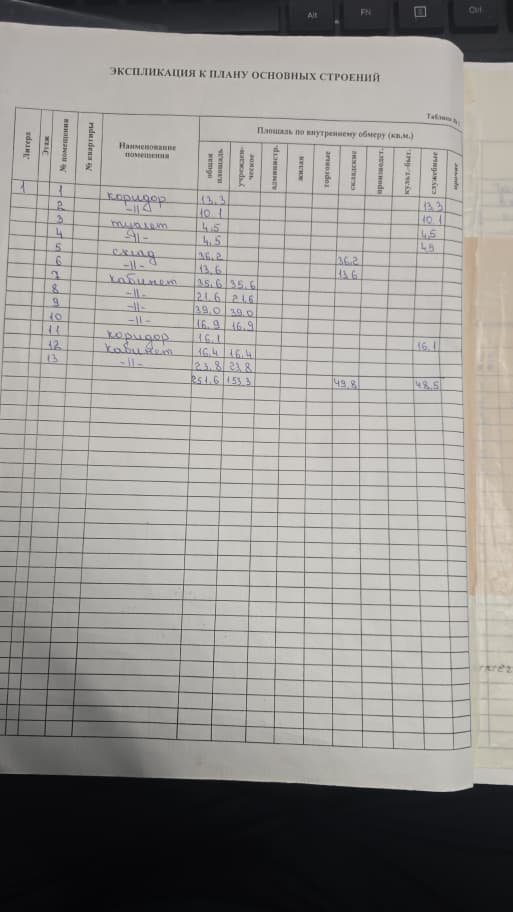 Alt FN Ctrl
ЭКСПЛИКАЦИЯ К ПЛАНУ ОСНОВНЫХ СТРОЕНИЙ
Таблица №
Литера Этаж № помещения № квартиры Наименование помещения Площадь по внутреннему обмеру (кв.м.)
общая площадь учрежден-ческое администр. жилая торговые складские производст. культ.-быт. служебные прочее
1 1 коридор 13,3 13,3
2 -//- 10.1 10.1
3 туалет 4,5 4,5
4 -//- 4,5 4,5
5 склад 36,2 36,2
6 -//- 13,6 13,6
7 кабинет 35,6 35,6
8 -//- 21,6 21,6
9 -//- 39,0 39,0
10 -//- 16,9 16,9
11 коридор 16,1 16,1
12 кабинет 16,4 16,4
13 -//- 23,8 23,8
251,6 153,3 49,8 48,5